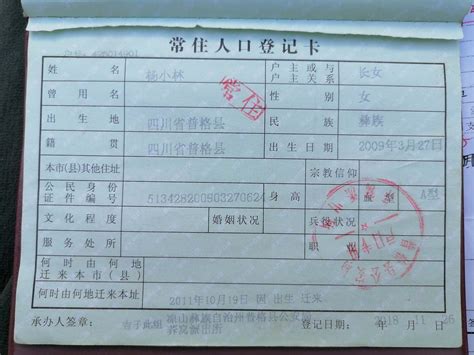 常住人口登记卡
姓名 杨小林 户主或与户主关系 长女
曾用名 性别 女
出生地 四川省普格县 民族 彝族
籍贯 四川省普格县 出生日期 2009年3月27日
本市（县）其他住址 宗教信仰
公民身份证件编号 513428200903270624 身高 血型 A型
文化程度 婚姻状况 兵役状况
服务处所 职业
何时由何地迁来本市（县）
何时由何地迁来本址 2011年10月19日 因 出生 迁来
承办人签章： 凉山彝族自治州普格县公安局 登记日期： 2018 11
荞窝派出所
常住